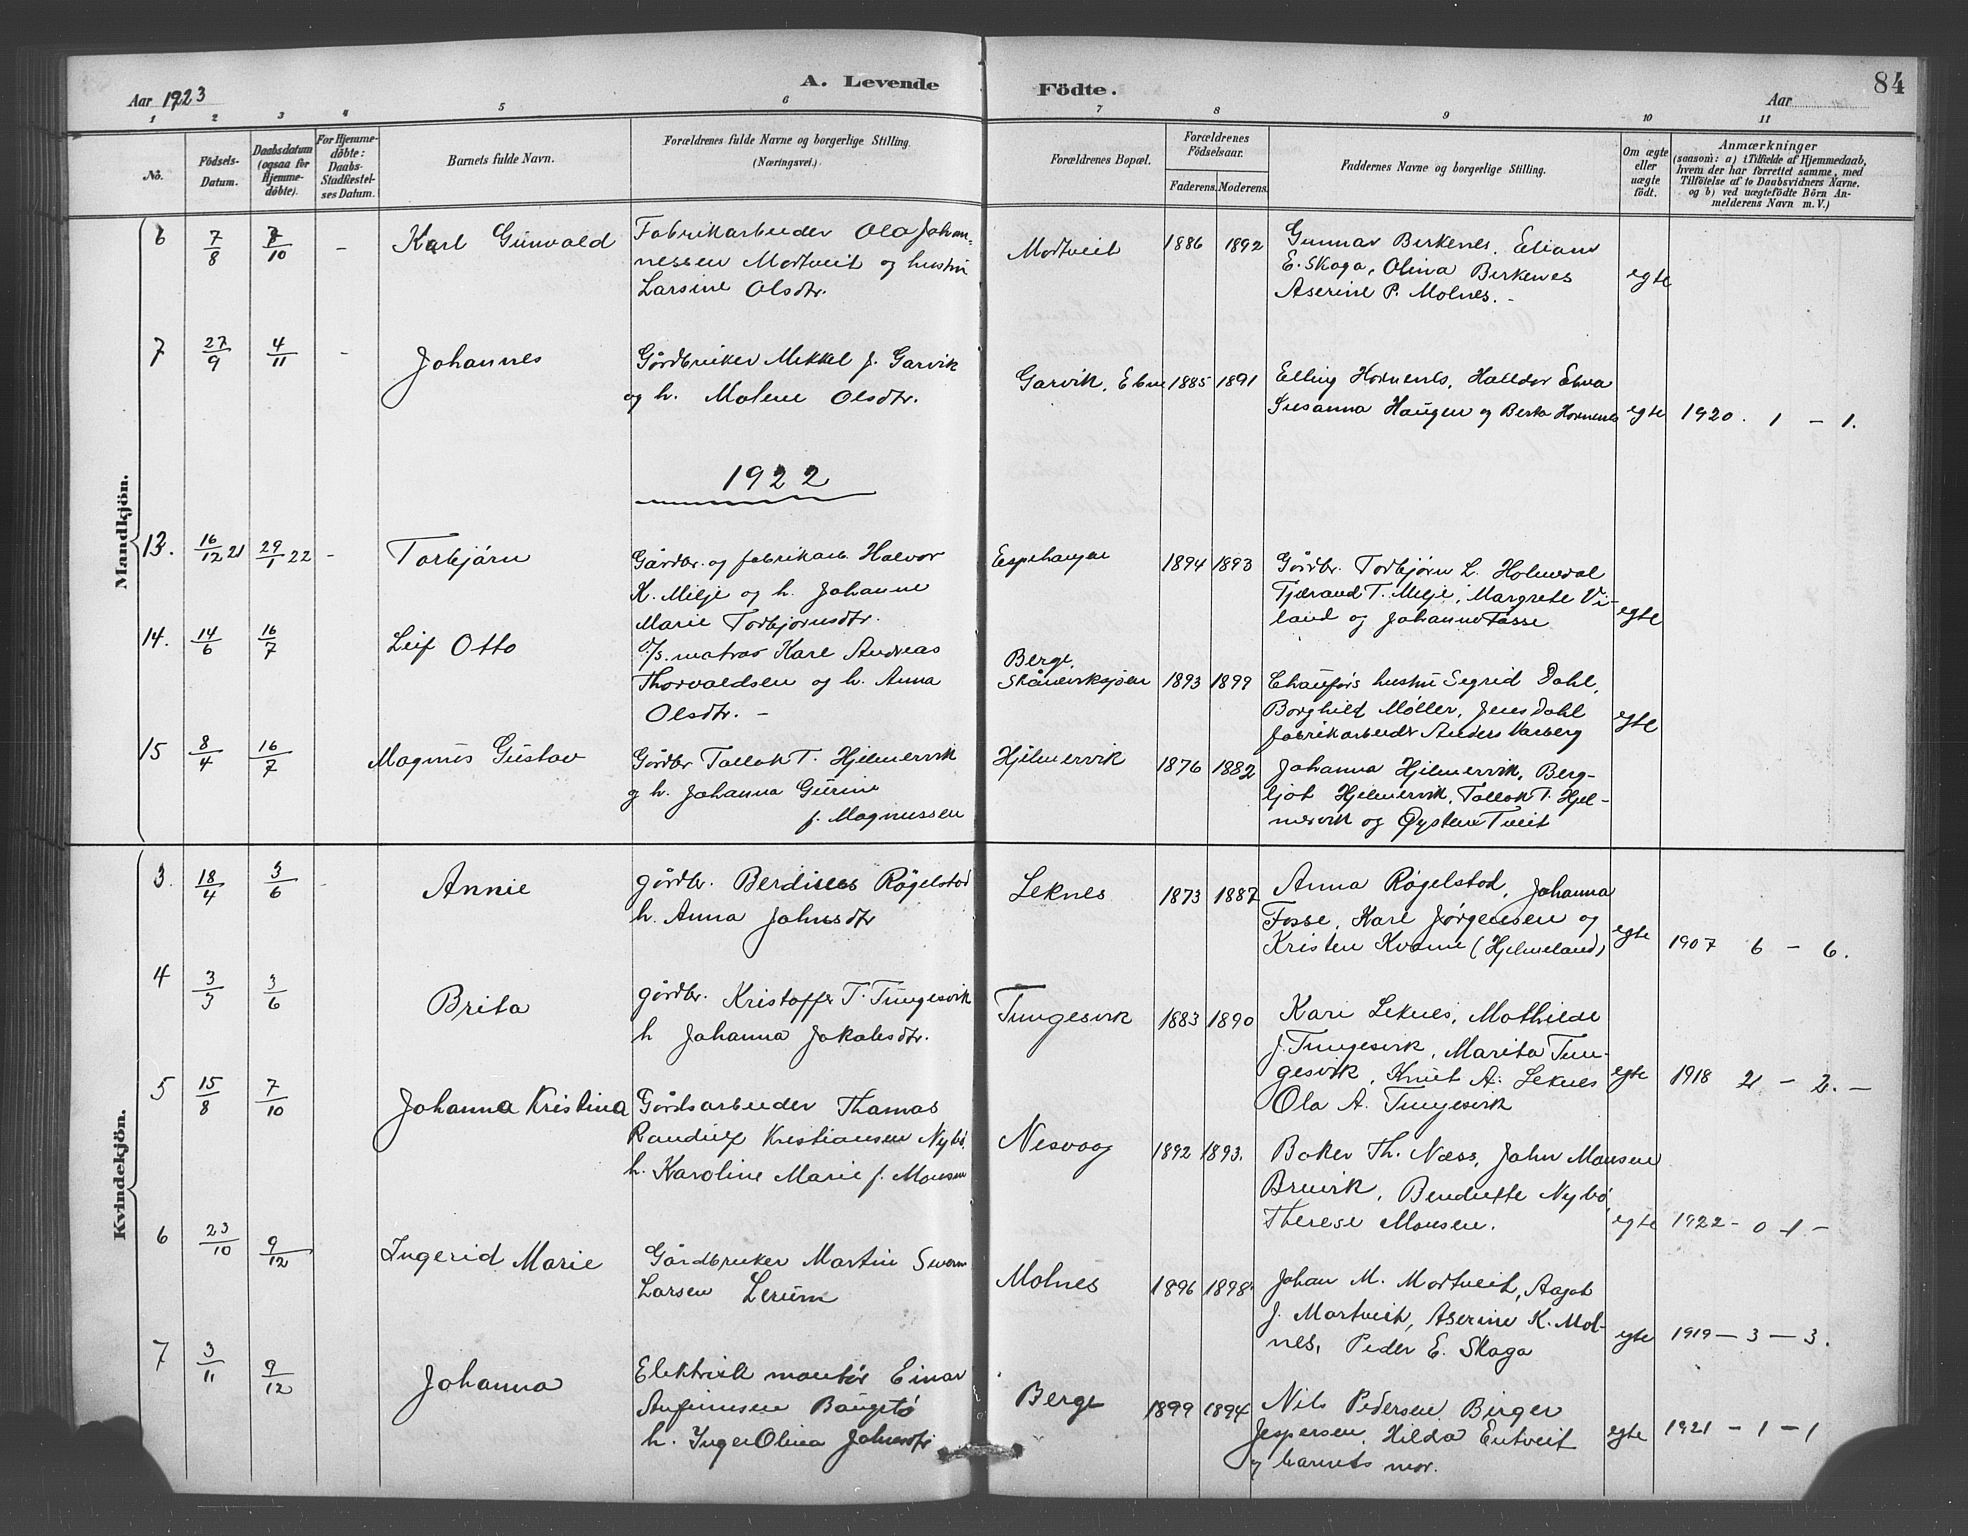 Aar 1923
A. Levende Födte.
Aar
84
1 2 3 4 5 6 7 8 9 10 11
No.
Födsels-Datum.
Daabsdatum (ogsaa for Hjemme-döbte).
For Hjemme-döbte: Daabs-Stadfestel-ses Datum.
Barnets fulde Navn.
Forældrenes fulde Navne og borgerlige Stilling. (Næringsvei.)
Forældrenes Bopæl.
Forældrenes Födselsaar.
Faderens. Moderens.
Faddernes Navne og borgerlige Stilling.
Om ægte eller uægte födt.
Anmærkninger
(saasom: a) i Tilfælde af Hjemmedaab, hvem der har forrettet samme, med Tilföielse af to Daabsvidners Navne. og b) ved uægtefödte Börn An-melderens Navn m. V.)
Mandkjön.
6 7/8 7/10 - Karl Gunvald
Fabrikarbeider Ola Johan-
nessen Mortveit og hustru
Larsine Olsdtr.
Mortveit 1886 1892
Gunnar Birkenes, Eliam
E. Skaga, Olina Birkenes
Aserine P. Molnes. -
egte
7 27/9 4/11 - Johannes
Gårdbruker Mikkel J. Garvik
og h. Molene Olsdtr.
Garvik, Etne 1885 1891
Elling Hornenes, Halldor Etna
Susanna Haugen og Berta Hornenes
egte 1920. 1 - 1.
1922
13. 16/12 21 29/1 22 - Torbjörn
Gårdbr. og fabrikarb. Halvor
K. Milje og h. Johanne
Marie Torbjornsdtr.
Espehaugen 1894 1893
Gårdbr. Torbjørn L. Holmedal
Tjærand T. Milje, Margrete Vi-
land og Johanne Fosse
egte
14. 14/6 16/7 Leif Otto
o/s. matros Karl Andreas
Thorvaldsen og h. Anna
Olsdtr. -
Berge,
Skånevik­sjøen 1893 1899
Chauførs hustru Sigrid Dahl,
Borghild Møller, Jens Dahl
fabrikarbeider Anders Varberg
egte
15 8/4 16/7 Magnus Gustav
Gårdbr Tallok T. Hjelmervik
og h. Johanna Gurine
f. Magnussen
Hjelmervik 1876 1882
Johanna Hjelmervik, Berg-
ljot Hjelmervik, Tallok T. Hjel-
mervik og Øystein Tveit
Kvindekjön.
3. 18/4 3/6 - Annie
gårdbr. Berdines Røgelstad
h. Anna Johnsdtr
Leknes 1873 1887
Anna Røgelstad, Johanna
Fosse, Karl Jørgensen og
Kristen Kvame (Hjelmeland)
egte 1907 6 - 6.
4 3/3 3/6 Brita
gårdbr. Kristoffer T. Tungesvik
h Johanna Jakobsdtr.
Tungesvik 1883 1890
Kari Leknes, Mathilde
J. Tungesvik, Marita Tun-
gesvik, Knut A. Leknes
Ola A. Tungesvik
egte 1918 2 - 2. -
5 15/8 7/10 Johanna Kristina
Gårdsarbeider Thomas
Randulf Kristiansen Nybø
h. Karoline Marie f. Monsen
Nesvaag 1892 1893.
Baker Th. Næss, John Monsen
Breivik, Bendikte Nybø,
Therese Monsen.
egte 1922 - 0 - 1 -
6 23/10 9/12 Ingerid Marie
Gårdbruker Martin
Larsen Lerum
Molnes 1896 1898.
Johan M. Mortveit, Aagot
J. Mortveit, Aserine K. Mol-
nes, Peder E. Skaga
egte 1919 - 3 - 3.
7 3/11 9/12 Johanna
Elektrisk montør Einar
Anfinnsen Baugstø
h. Inger Olina Johnsdtr
Berge 1899 1894
Nils Pedersen, Birger
Jespersen, Hilda Entveit
og barnets mor.
egte 1921 - 1 - 1